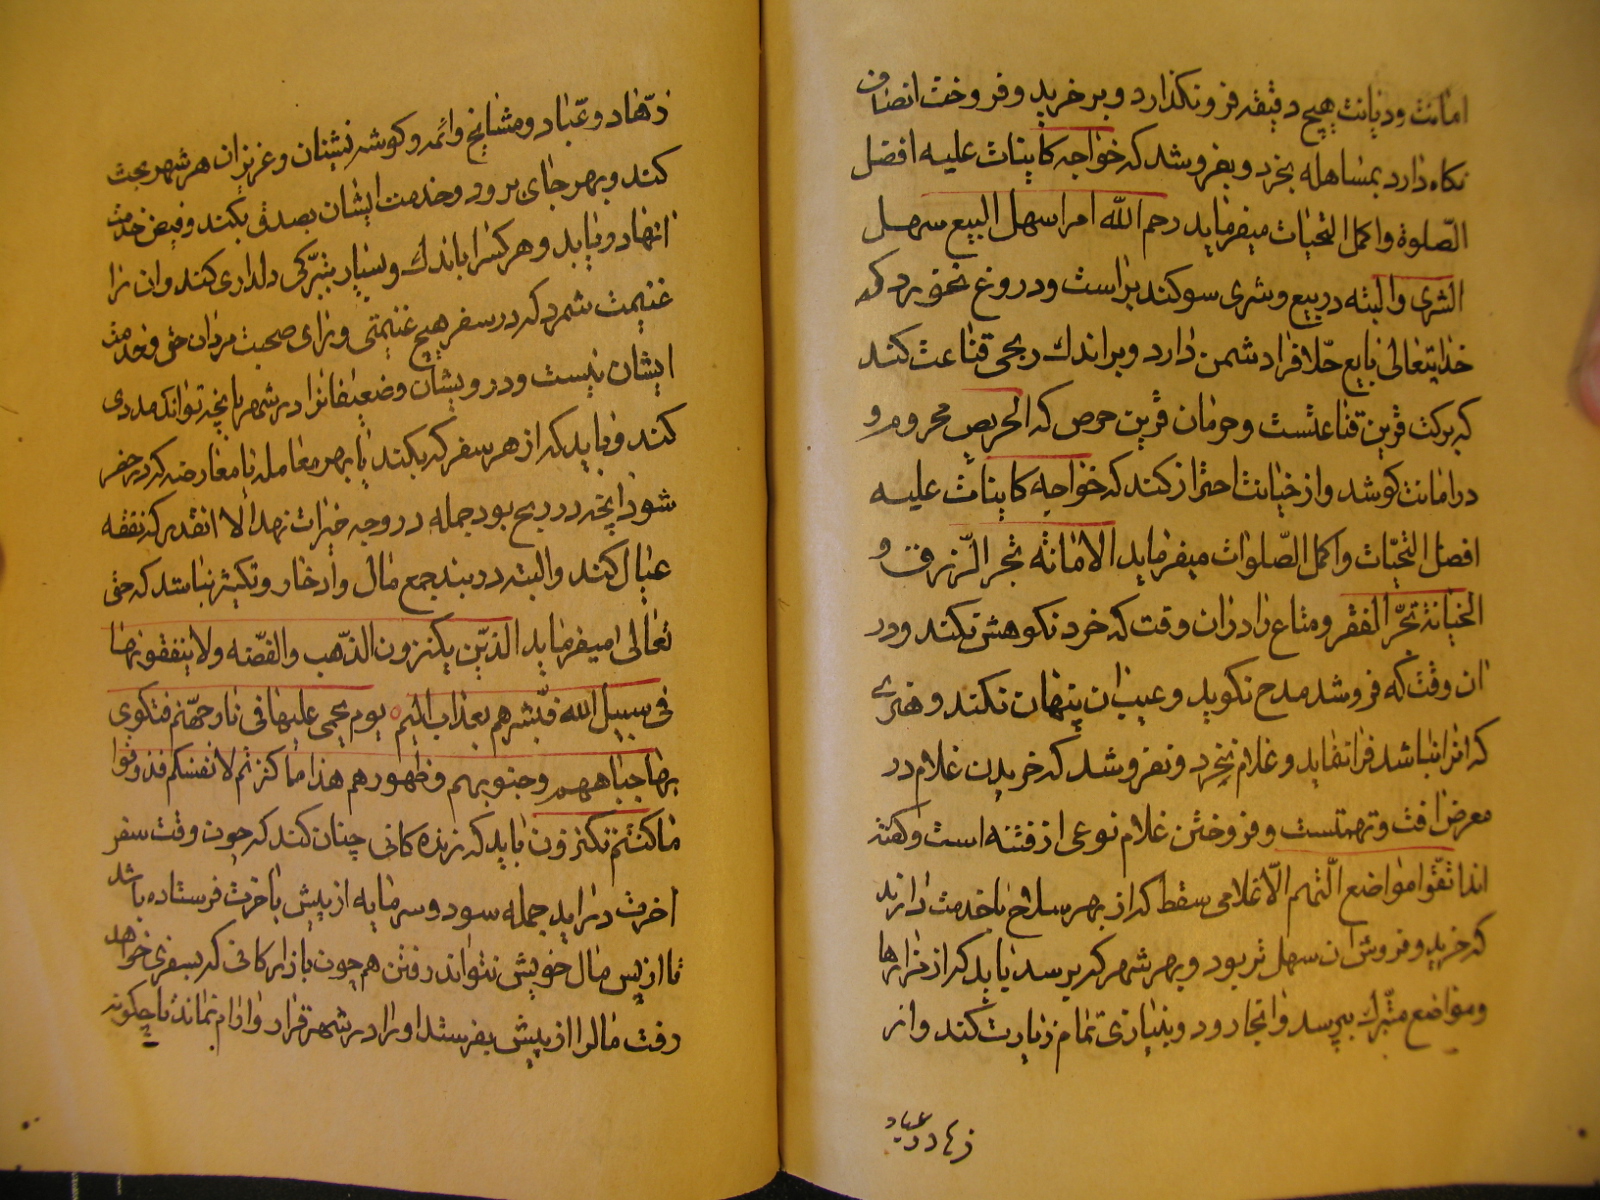 امانت و دیانت هیچ دقیقه فرونگذارد و بر خرید و فروخت انصاف
نگاه دارد بمساهله بخرد و بفروشد که خواجه کاینات علیه افضل
الصّلوة و اکمل التحیات میفرماید رحم الله امرا سهل البیع سهل
الشری و البته در بیع و شری سوکند براست و دروغ نخورد که
خدایتعالی بایع حلاف را دشمن دارد و بر اندک ربحی قناعت کند
که برکت قرین قناعتست و حرمان قرین حرص که الحریص محروم و
در امانت کوشد و از خیانت احتراز کند که خواجه کاینات علیه
افضل التحیّات و اکمل الصّلوات میفرماید الامانة تجر الرّزق و
الخیانة تجرّ الفقر و متاع را در ان وقت که خرد نکوهش نکند و در
ان وقت که فروشد مدح نکوید و عیب ان پنهان نکند و هنری
که انرا نباشد فرا ننماید و غلام نخرد و نفروشد که خریدن غلام در
معرض افت و تهمتست و فروختن غلام نوعی از فتنه است و کفته
اند اتقّوا مواضع الّتهم الّا غلامی سقط که از بهر سلاح یا خدمت دارند
که خرید و فروش ان سهل تر بود و بهر شهر که برسد باید که از مزارها
و مواضع متبّرک بپرسد و انجا رود و بنیازی تمام زیارت کند و از
زهاد و عباد
زهّاد و عبّاد و مشایخ و ائمه و کوشه نشینان و عزیزان هر شهر بحث
کند و بهر جای برود و خدمت ایشان بصدق بکند و فیض خدمت
انها دریابد و هر کس را باندک و بسیار بتبرّکی دلداری کند و ان را
غنیمت شمرد که در سفر هیچ غنیمتی ورای صحبت مردان حق و خدمت
ایشان نیست و درویشان و ضعیفانرا در شهر با انچه تواند مددی
کند و باید که از هر سفر که بکند یا بهر معامله یا معارضه که در حضر
شود انچه در ربح بود جمله در وجه خیرات نهد الا انقدر که نفقه
عیال کند و البته در بند جمع مال و ادخار و تکثیر نباشد که حق
تعالی میفرماید الذیّن یکنزون الذّهب والفضّه ولا ینفقونها
فی سبیل الله فبّشرهم بعذاب الیم یوم یحمی علیها فی نار جهّنم فتکوی
بها جباههم وجنوبهم وظهورهم هذا ما کنزتم لانفسکم فذوقوا
ما کنتم تکنزون باید که زنده کانی چنان کند که چون وقت سفر
اخرت دراید جمله سود و سرمایه از پیش باخرت فرستاده باشد
تا از پس مال خویش نتواند رفتن هم چون بازارکانی که بسفری خواهد
رفت مال را از پیش بفرستد او را در شهر قرار و ارام نماند تا چکونه